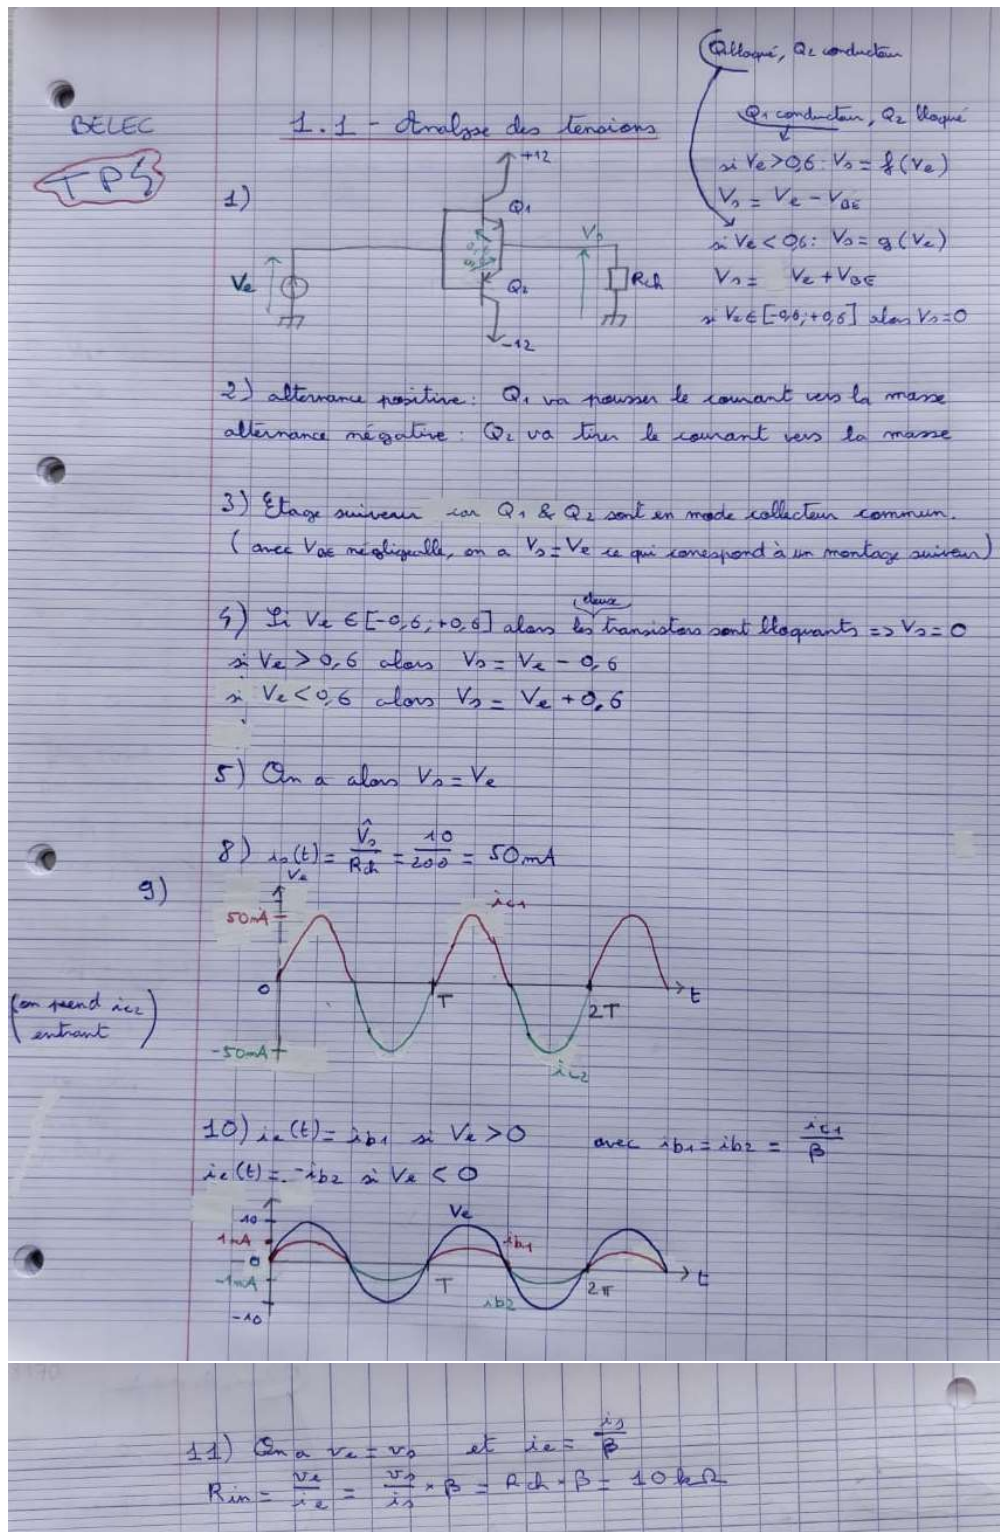 BELEC
TP5
1.1 - Analyse des tensions
Q1 bloqué, Q2 conducteur
Q1 conducteur, Q2 bloqué
si Ve>0,6 : Vs = f(Ve)
Vs = Ve - VBE
si Ve < 0,6 : Vs = g(Ve)
Vs = Ve + VBE
si Ve ∈ [-0,6 ; +0,6] alors Vs=0
1)
+12
Q1
Vs
Ve
Q2
Rch
-12
2) alternance positive : Q1 va pousser le courant vers la masse
alternance négative : Q2 va tirer le courant vers la masse
3) Etage suiveur car Q1 & Q2 sont en mode collecteur commun.
(avec VBE négligeable, on a Vs = Ve ce qui correspond à un montage suiveur)
4) Si Ve ∈ [-0,6 ; +0,6] alors les deux transistors sont bloquants => Vs = 0
si Ve > 0,6 alors Vs = Ve - 0,6
si Ve < 0,6 alors Vs = Ve + 0,6
5) On a alors Vs = Ve
8) is(t) = V̂s/Rch = 10/200 = 50mA
9)
Ve
50mA
ic1
0
T
2T
t
(on prend ic2
entrant)
-50mA
ic2
10) ie(t) = ib1 si Ve > 0 avec ib1 = ib2 = ic1/β
ie(t) = -ib2 si Ve < 0
10
Ve
1mA
ib1
0
t
-1mA
T
2π
ib2
-10
11) On a ve = vs et ie = is/β
Rin = ve/ie = vs/is × β = Rch × β = 10 kΩ